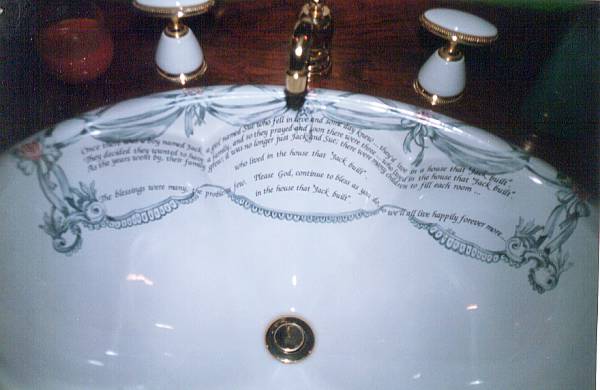 Once there was a boy named Jack, a girl named Sue who fell in love and some day knew ... they'd live in a house that "Jack built"
They decided they wanted to have a family, and so they prayed and soon there were three ... who lived in the house that "Jack built"
As the years went by, their family grew; it was no longer just Jack and Sue; there were many children to fill each room ...
who lived in the house that "Jack built"
The blessings were many, problems few. Please God, continue to bless as you do, so we'll all live happily forever more
in the house that "Jack built"